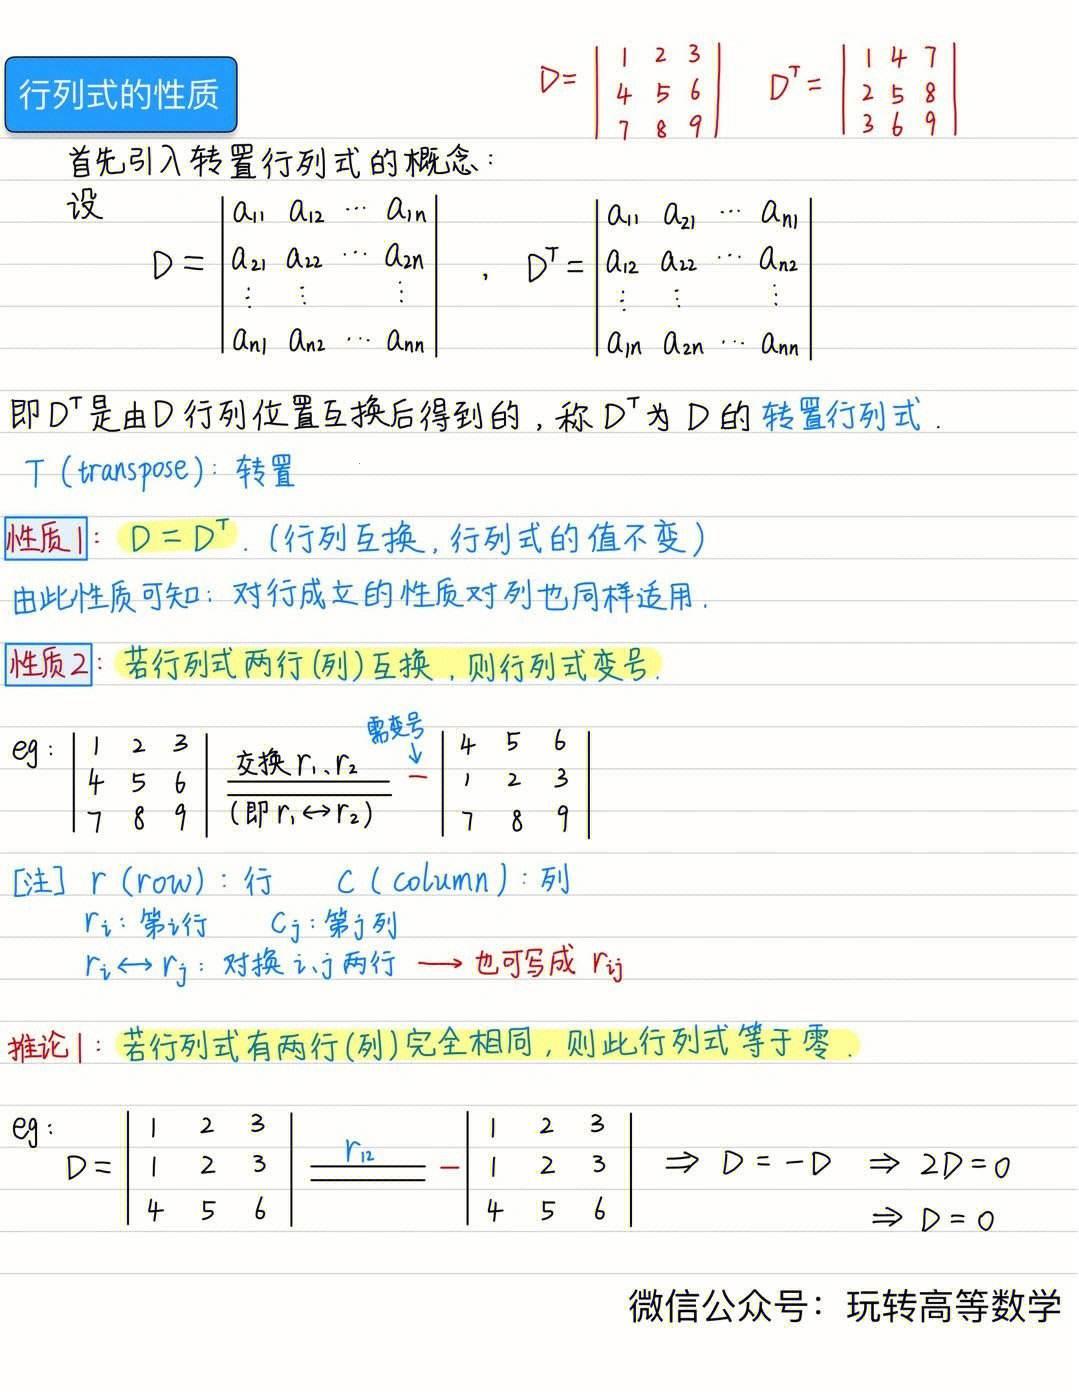 行列式的性质
D= | 1 2 3 | D^T = | 1 4 7 |
| 4 5 6 | | 2 5 8 |
| 7 8 9 | | 3 6 9 |
首先引入转置行列式的概念:
设
| a₁₁ a₁₂ ⋯ a₁ₙ | | a₁₁ a₂₁ ⋯ aₙ₁ |
D = | a₂₁ a₂₂ ⋯ a₂ₙ | , D^T = | a₁₂ a₂₂ ⋯ aₙ₂ |
| ⋮ ⋮ ⋮ | | ⋮ ⋮ ⋮ |
| aₙ₁ aₙ₂ ⋯ aₙₙ | | a₁ₙ a₂ₙ ⋯ aₙₙ |
即 D^T 是由 D 行列位置互换后得到的, 称 D^T 为 D 的 转置行列式.
T (transpose): 转置
性质1: D = D^T. (行列互换, 行列式的值不变)
由此性质可知: 对行成立的性质对列也同样适用.
性质2: 若行列式两行(列)互换, 则行列式变号.
需变号
eg: | 1 2 3 | 交换 r₁、r₂ ↓ | 4 5 6 |
| 4 5 6 | − | 1 2 3 |
| 7 8 9 | (即 r₁↔r₂) | 7 8 9 |
[注] r (row): 行 C (column): 列
rᵢ: 第i行 Cⱼ: 第j列
rᵢ↔rⱼ: 对换 i、j 两行 → 也可写成 rᵢⱼ
推论1: 若行列式有两行(列)完全相同, 则此行列式等于零.
eg: | 1 2 3 | | 1 2 3 |
D = | 1 2 3 | r₁₂ − | 1 2 3 | ⇒ D = −D ⇒ 2D = 0
| 4 5 6 | | 4 5 6 | ⇒ D = 0
微信公众号：玩转高等数学